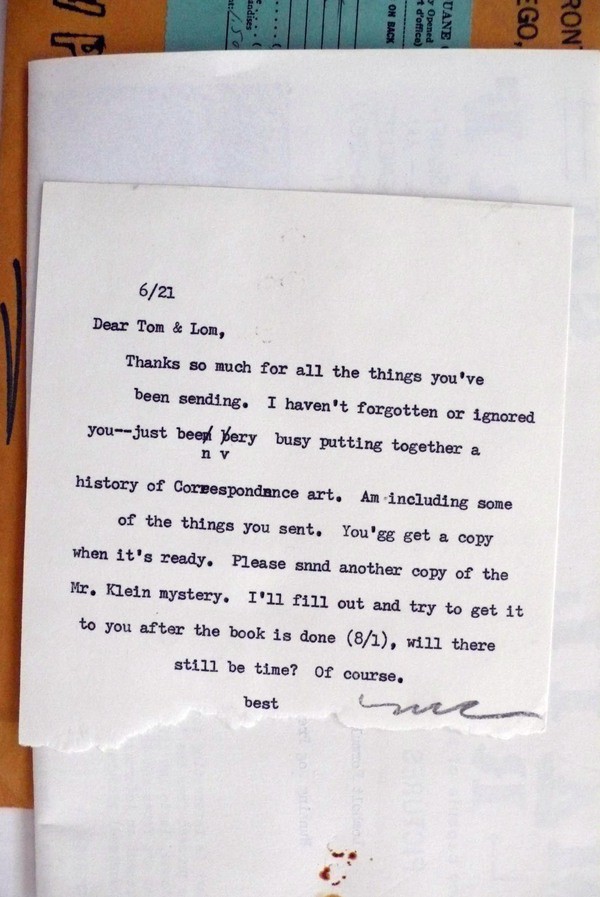 UANE
y Opened
t d'office)
ON BACK
RON
EGO,
6/21
Dear Tom & Lom,
Thanks so much for all the things you've
been sending. I haven't forgotten or ignored
you--just beep bery busy putting together a
n v
history of Correspondence art. Am including some
of the things you sent. You'gg get a copy
when it's ready. Please snnd another copy of the
Mr. Klein mystery. I'll fill out and try to get it
to you after the book is done (8/1), will there
still be time? Of course.
best